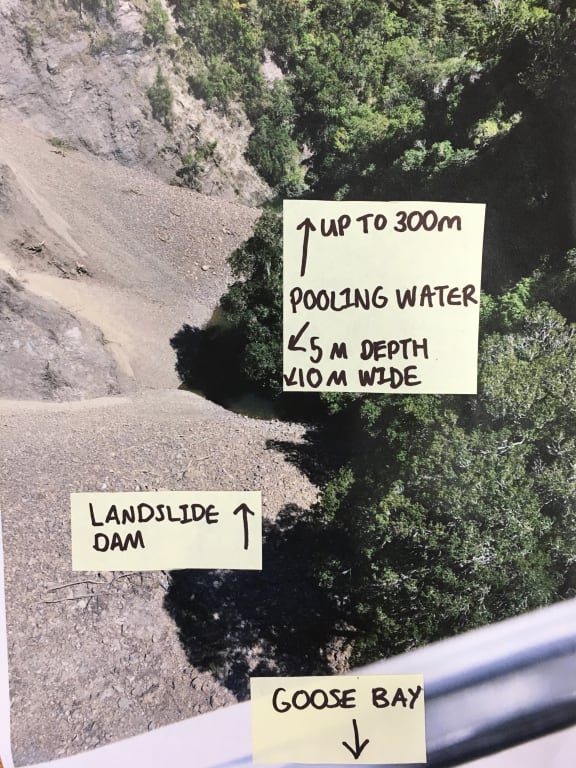 ↑ UP TO 300M
POOLING WATER
↙ 5 M DEPTH
↙ 10 M WIDE
LANDSLIDE ↑
DAM
GOOSE BAY
↓